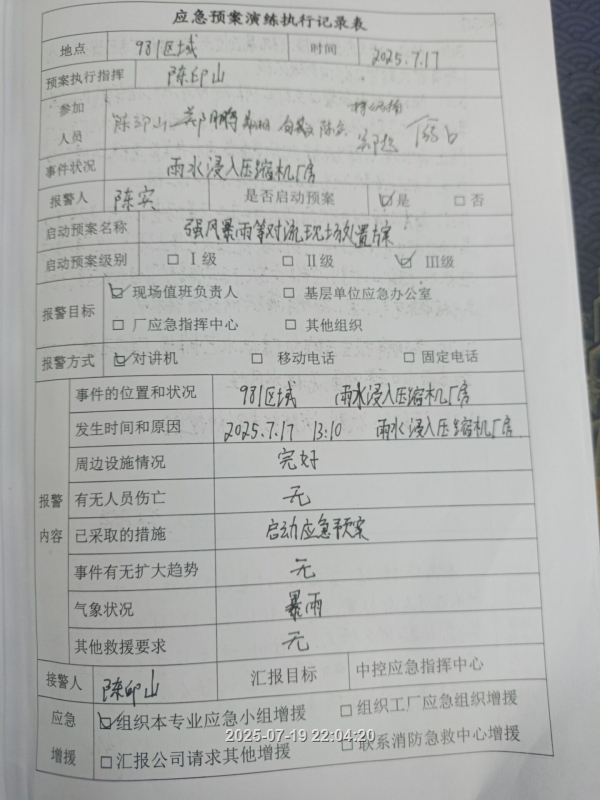 应急预案演练执行记录表
地点 981区域 时间 2025.7.17
预案执行指挥 陈印山
参加人员 陈印山
事件状况 雨水浸入压缩机厂房
报警人 陈实 是否启动预案 ☑是 □否
启动预案名称 强风暴雨等对流现场处置方案
启动预案级别 □Ⅰ级 □Ⅱ级 ☑Ⅲ级
报警目标 ☑现场值班负责人 □基层单位应急办公室
□厂应急指挥中心 □其他组织
报警方式 ☑对讲机 □移动电话 □固定电话
报警内容
事件的位置和状况 981区域 雨水浸入压缩机厂房
发生时间和原因 2025.7.17 13:10 雨水浸入压缩机厂房
周边设施情况 完好
有无人员伤亡 无
已采取的措施 启动应急预案
事件有无扩大趋势 无
气象状况 暴雨
其他救援要求 无
接警人 陈印山 汇报目标 中控应急指挥中心
应急增援 ☑组织本专业应急小组增援 □组织工厂应急组织增援
□汇报公司请求其他增援 □联系消防急救中心增援
2025-07-19 22:04:20